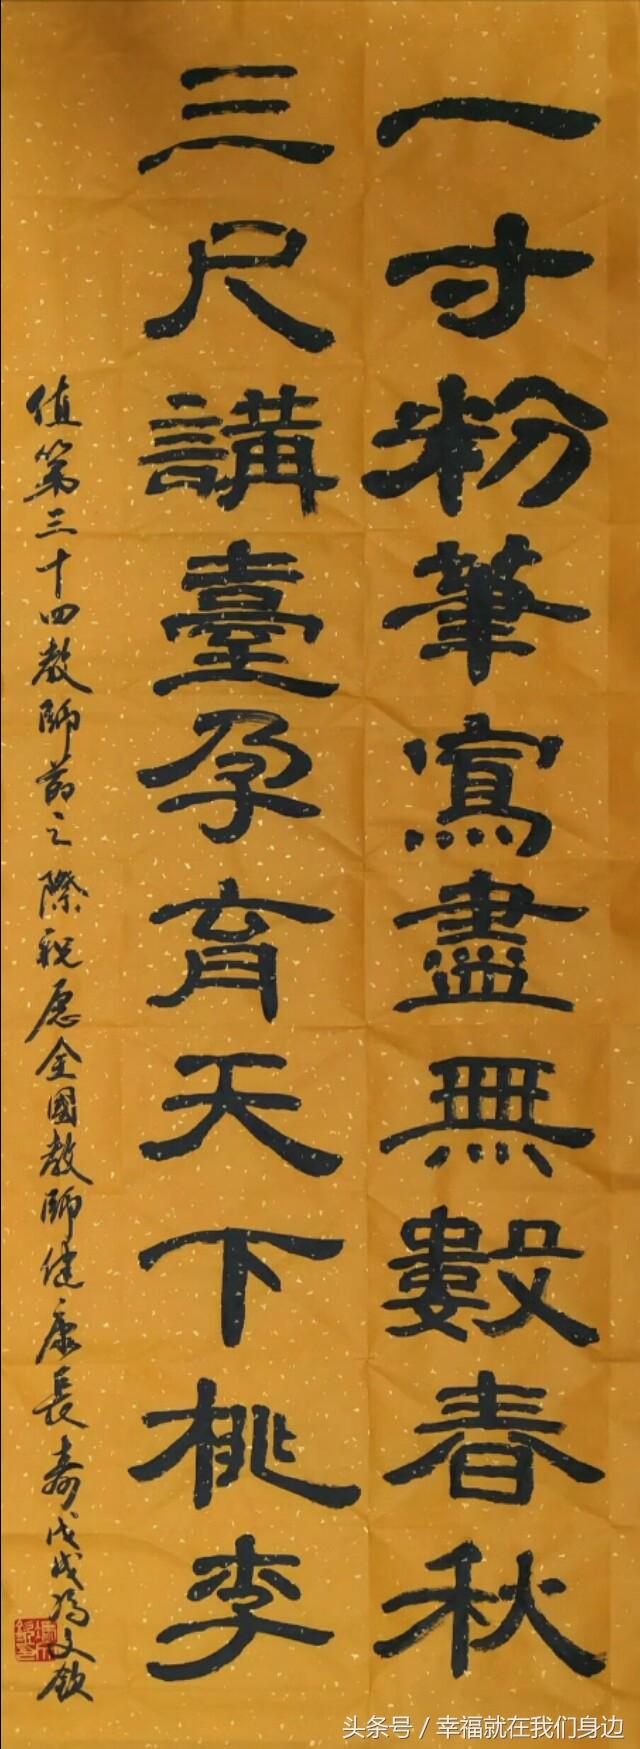 一寸粉筆寫盡無數春秋
三尺講臺孕育天下桃李
值第三十四教師節之際祝愿全國教師健康長壽戊戌馮文欽
头条号 / 幸福就在我们身边